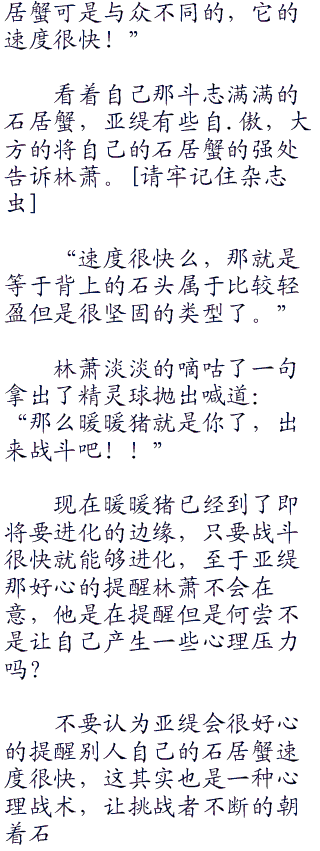 居蟹可是与众不同的，它的
速度很快！”
看着自己那斗志满满的
石居蟹，亚缇有些自.傲，大
方的将自己的石居蟹的强处
告诉林萧。[请牢记住杂志
虫]
“速度很快么，那就是
等于背上的石头属于比较轻
盈但是很坚固的类型了。”
林萧淡淡的嘀咕了一句
拿出了精灵球抛出喊道：
“那么暖暖猪就是你了，出
来战斗吧！！”
现在暖暖猪已经到了即
将要进化的边缘，只要战斗
很快就能够进化，至于亚缇
那好心的提醒林萧不会在
意，他是在提醒但是何尝不
是让自己产生一些心理压力
吗？
不要认为亚缇会很好心
的提醒别人自己的石居蟹速
度很快，这其实也是一种心
理战术，让挑战者不断的朝
着石